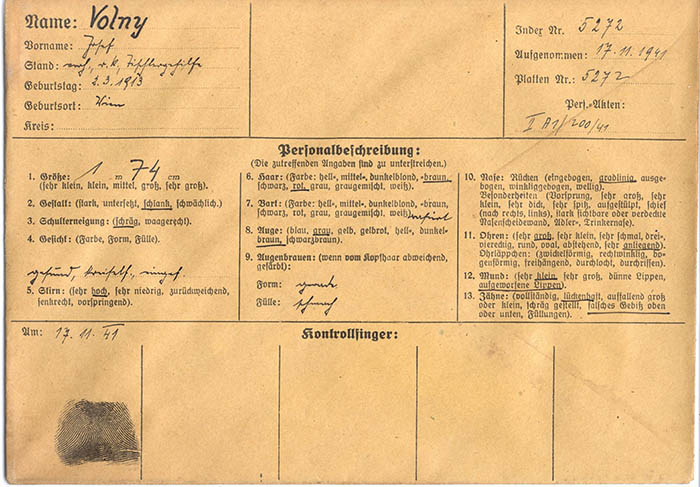 Name: Volny
Vorname: Josef
Stand: verh., r.k., Tischlergehilfe
Geburtstag: 2.3.1913
Geburtsort: Wien
Kreis:
Index Nr. 5272
Aufgenommen: 17.11.1941
Platten Nr.: 5272
Pers.-Akten:
II A1/200/41
Personalbeschreibung:
(Die zutreffenden Angaben sind zu unterstreichen.)
1. Größe: 1 m 74 cm
(sehr klein, klein, mittel, groß, sehr groß).
2. Gestalt: (stark, untersetzt, schlank, schwächlich.)
3. Schulterneigung: (schräg, waagerecht.)
4. Gesicht: (Farbe, Form, Fülle).
gesund,
5. Stirn: (sehr hoch, sehr niedrig, zurückweichend,
senkrecht, vorspringend).
6. Haar: (Farbe: hell-, mittel-, dunkelblond, -braun,
schwarz, rot, grau, graugemischt, weiß).
7. Bart: (Farbe: hell-, mittel-, dunkelblond, -braun,
schwarz, rot, grau, graugemischt, weiß) rasiert
8. Auge: (blau, grau, gelb, gelbrot, hell-, dunkel-
braun, schwarzbraun).
9. Augenbrauen: (wenn vom Kopfhaar abweichend,
gefärbt):
Form: gerade
Fülle: schwach
10. Nase: Rücken (eingebogen, gradlinig, ausge-
bogen, winkliggebogen, wellig).
Besonderheiten (Vorsprung, sehr groß, sehr
klein, sehr dick, sehr spitz, aufgestülpt, schief
(nach rechts, links), stark sichtbare oder verdeckte
Nasenscheidewand, Adler-, Trinkernase).
11. Ohren: (sehr groß, sehr klein, sehr schmal, drei-,
viereckig, rund, oval, abstehend, sehr anliegend).
Ohrläppchen: (zwickelförmig, rechtwinklig, bo-
genförmig, freihängend, durchlocht, durchrissen).
12. Mund: (sehr klein, sehr groß, dünne Lippen,
aufgeworfene Lippen).
13. Zähne: (vollständig, lückenhaft, auffallend groß
oder klein, schräg gestellt, falsches Gebiß oben
oder unten, Füllungen).
Am: 17.11.41
Kontrollfinger: